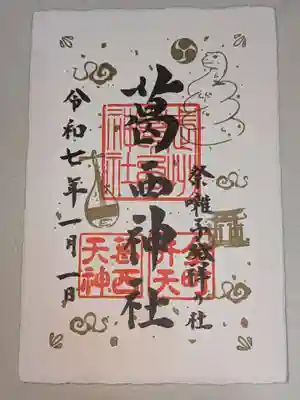 祭囃子発祥乃社
葛西神社
令和七年一月一日
金町
弁天
葛西
天神